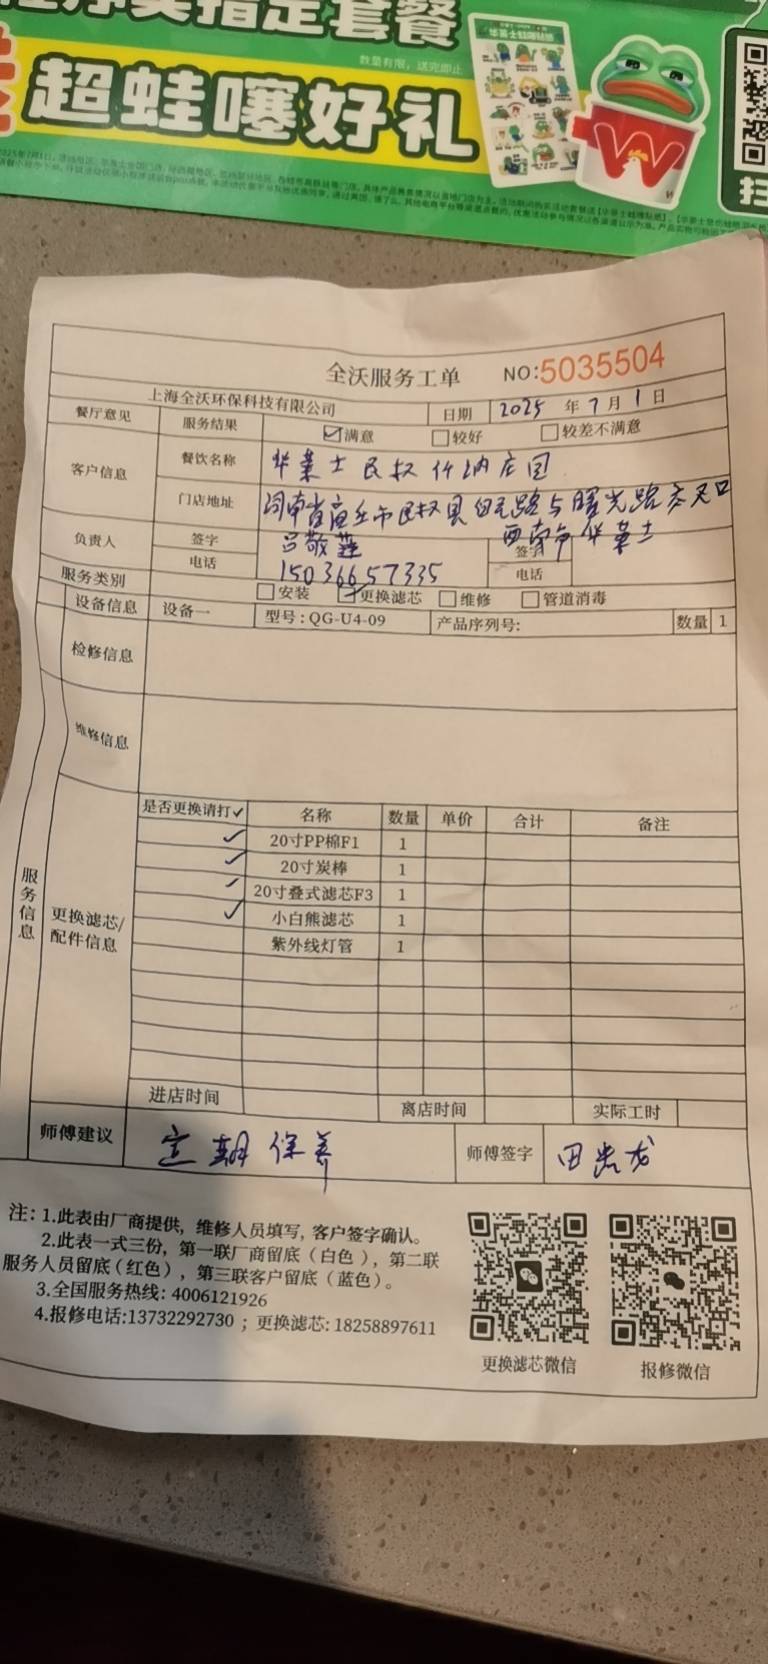 指定套餐
数量有限，送完即止
超蛙噻好礼
扫
全沃服务工单 NO:5035504
上海全沃环保科技有限公司 日期 2025 年 7 月 1 日
餐厅意见 服务结果 ☑满意 □较好 □较差不满意
客户信息 餐饮名称 华莱士民权什纳庄园
门店地址 河南省商丘市民权县 路与曙光路交叉口
西南角华莱士
负责人 签字 吕敬莲 签字
电话 15036657335 电话
服务类别 □安装 ☑更换滤芯 □维修 □管道消毒
设备信息 设备一 型号：QG-U4-09 产品序列号: 数量 1
检修信息
维修信息
服务信息
更换滤芯/配件信息
是否更换请打✓ 名称 数量 单价 合计 备注
✓ 20寸PP棉F1 1
✓ 20寸炭棒 1
✓ 20寸叠式滤芯F3 1
✓ 小白熊滤芯 1
紫外线灯管 1
进店时间 离店时间 实际工时
师傅建议 定期保养 师傅签字 田 龙
注：1.此表由厂商提供，维修人员填写, 客户签字确认。
2.此表一式三份，第一联厂商留底（白色 ），第二联
服务人员留底（红色），第三联客户留底（蓝色）。
3.全国服务热线: 4006121926
4.报修电话:13732292730 ；更换滤芯: 18258897611
更换滤芯微信 报修微信